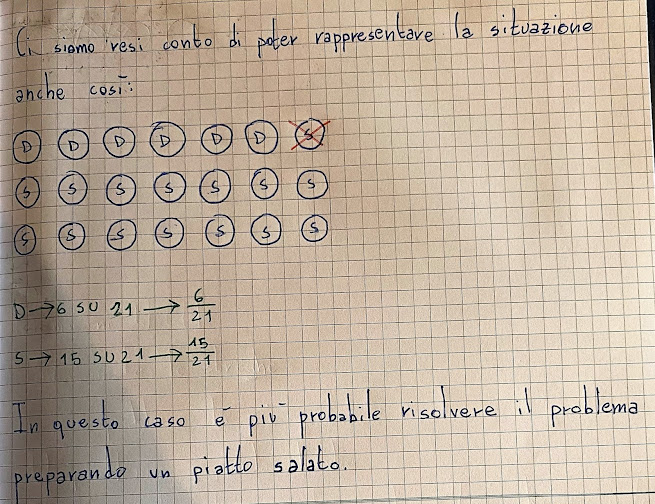 Ci siamo resi conto di poter rappresentare la situazione
anche così:
D D D D D D S
S S S S S S S
S S S S S S S
D → 6 SU 21 → 6/21
S → 15 SU 21 → 15/21
In questo caso è più probabile risolvere il problema
preparando un piatto salato.